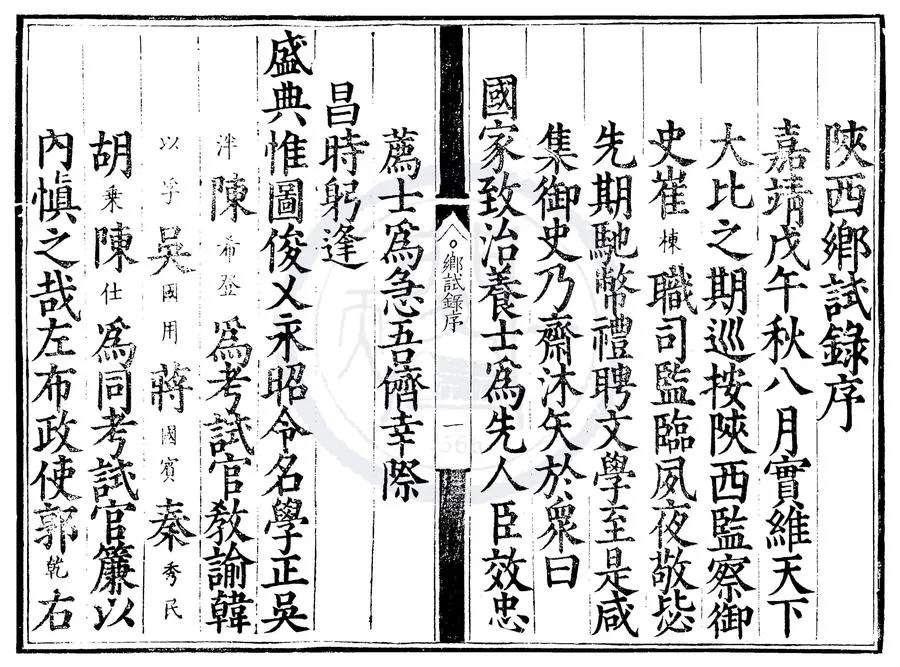 陝西鄉試錄序
嘉靖戊午秋八月實維天下
大比之期巡按陝西監察御
史崔棟職司監臨夙夜敬毖
先期馳幣禮聘文學至是咸
集御史乃齋沐矢於眾曰
國家致治養士為先人臣效忠
鄉試錄序
一
薦士為急吾儕幸際
昌時躬逢
盛典惟圖俊乂永昭令名學正吳
泮陳希登為考試官教諭韓
以孚吳國用蔣國賓秦秀民
胡乗陳仕為同考試官簾以
內慎之哉左布政使郭乾右